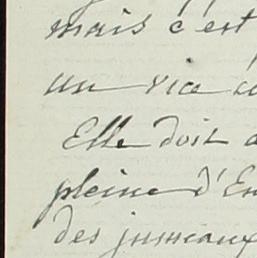 mais c'est
un vice
Elle doit
pleine d'En
des jumeaux